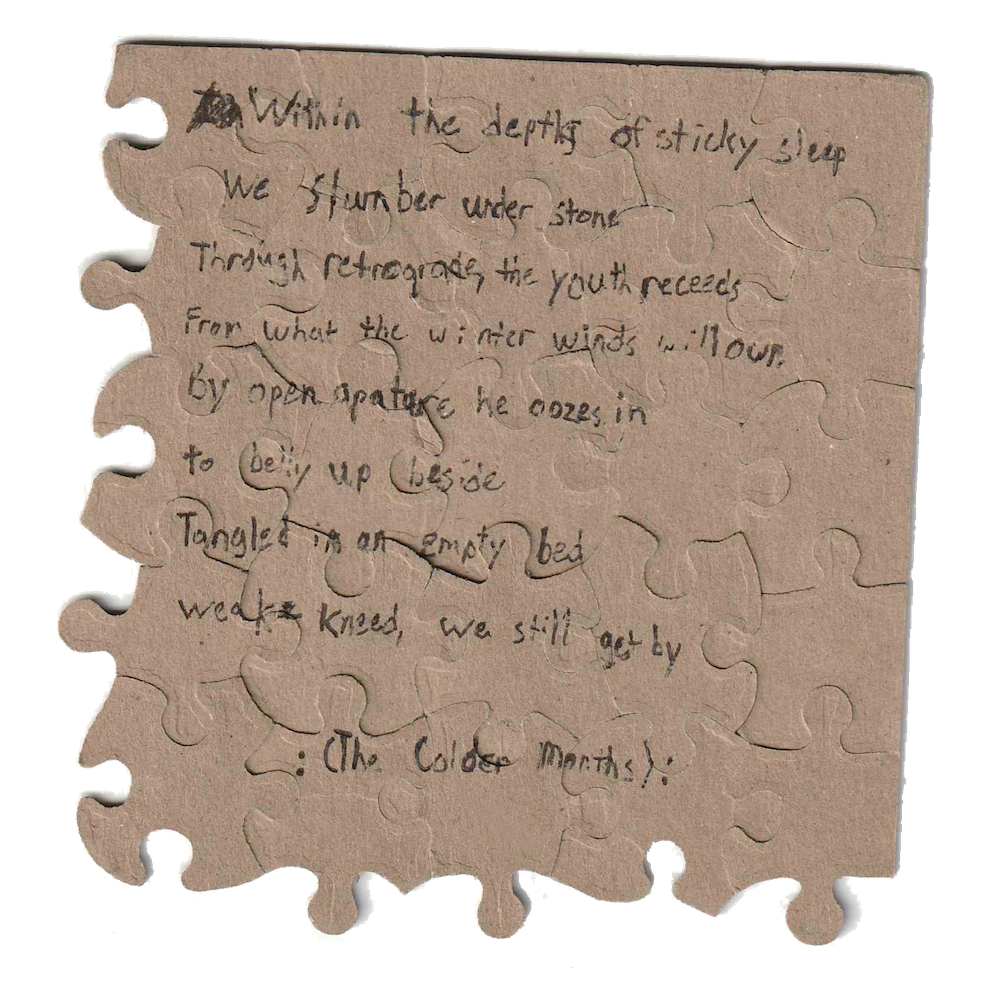 Within the depths of sticky sleep
We slumber under stone
Through retrograde, the youth receeds
From what the winter winds will own.
By open apature he oozes in
to belly up beside
Tangled in an empty bed
weak kneed, we still get by
:(The Colder Months):